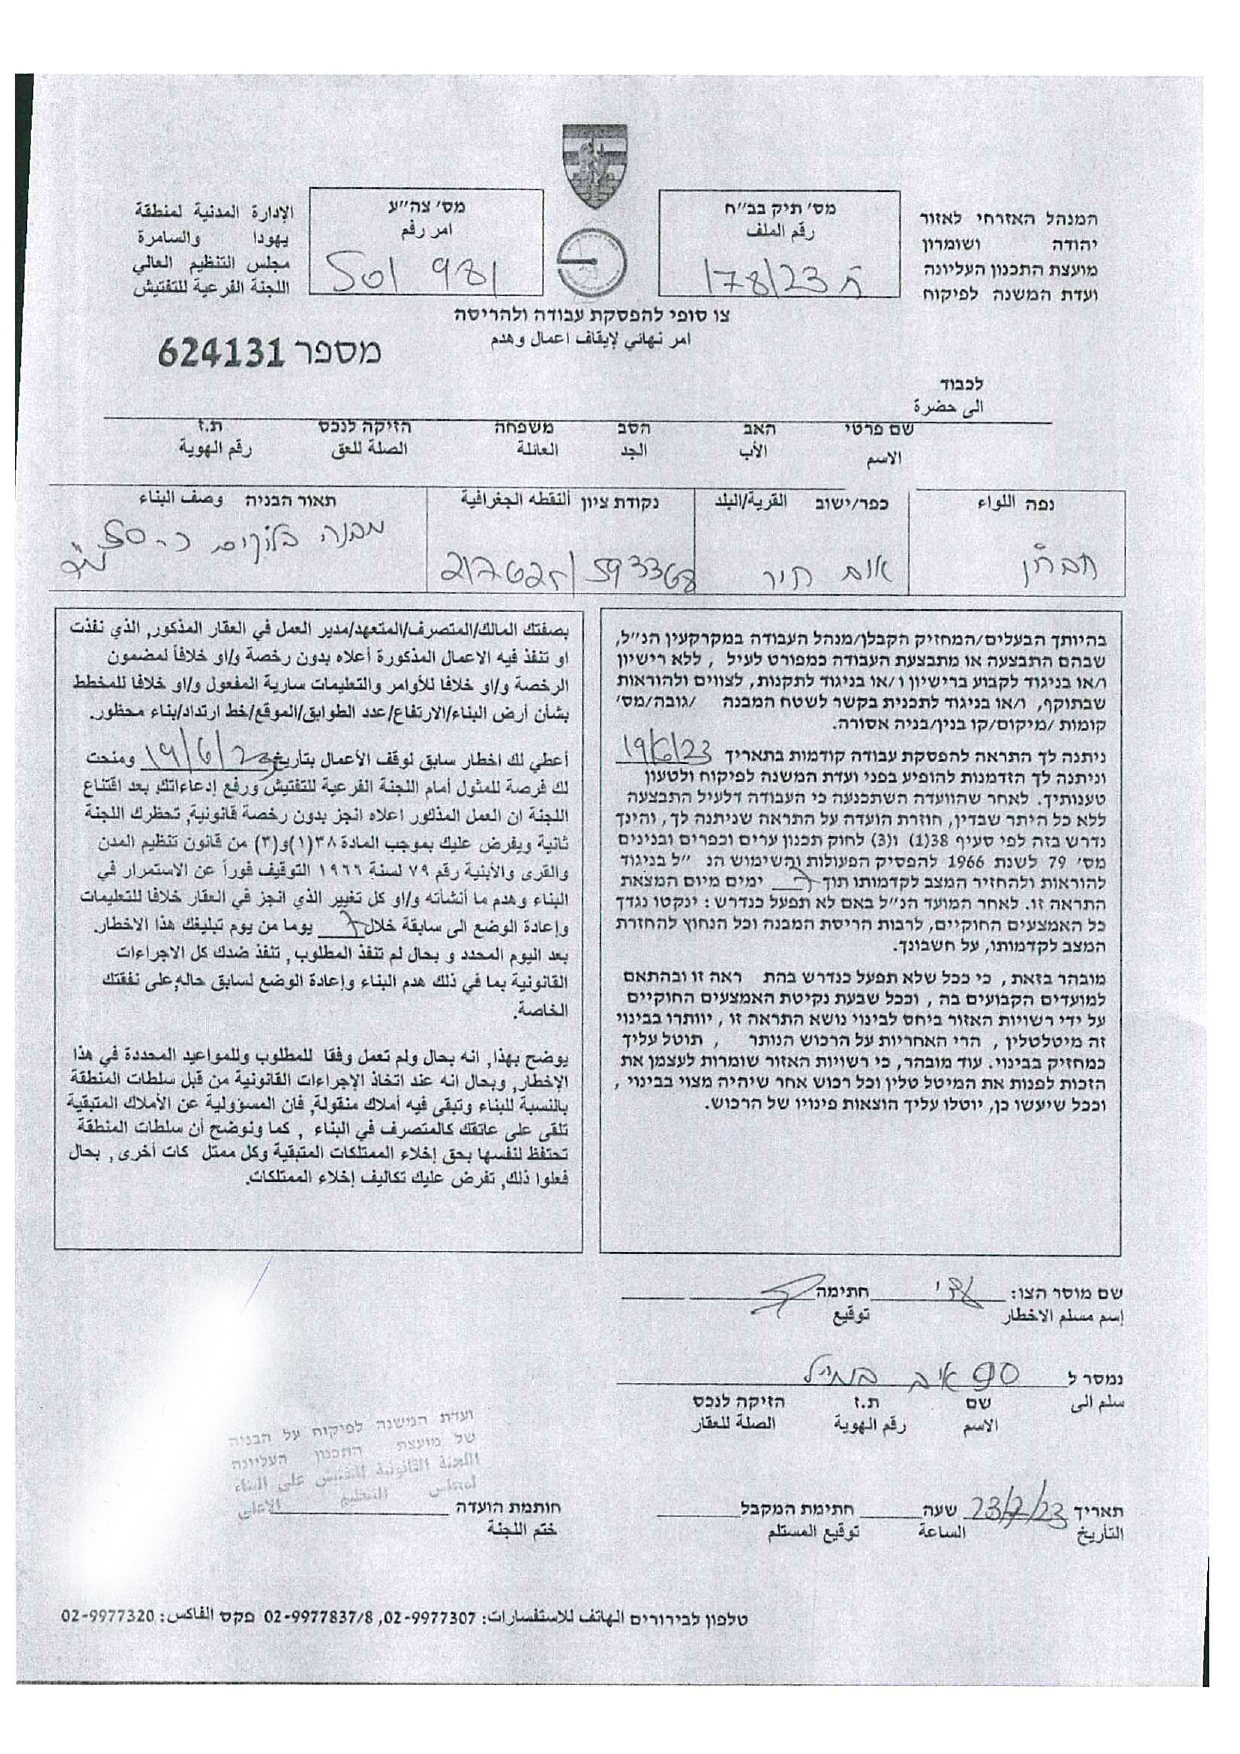 המנהל האזרחי לאזור
יהודה ושומרון
מועצת התכנון העליונה
ועדת המשנה לפיקוח
מס׳ תיק בב״ח
رقم الملف
178/23 ח
מס׳ צה״ע
امر رقم
501 981
الإدارة المدنية لمنطقة
يهودا والسامرة
مجلس التنظيم العالي
اللجنة الفرعية للتفتيش
צו סופי להפסקת עבודה ולהריסה
امر نهائي لإيقاف اعمال وهدم
מספר 624131
לכבוד
الى حضرة
שם פרטי האב הסב משפחה הזיקה לנכס ת.ז
الاسم الأب الجد العائلة الصلة للعق رقم الهوية
נפה اللواء כפר/ישוב القرية/البلد נקודת ציון ألنقطه الجغرافية תאור הבניה وصف البناء
חברון אום חיר 217625/593368 מבנה בלוקים כ-50 מ"ר
בהיותך הבעלים/המחזיק הקבלן/מנהל העבודה במקרקעין הנ״ל,
שבהם התבצעה או מתבצעת העבודה כמפורט לעיל , ללא רישיון
ו/או בניגוד לקבוע ברישיון ו/או בניגוד לתקנות, לצווים ולהוראות
שבתוקף, ו/או בניגוד לתכנית בקשר לשטח המבנה /גובה/מס׳
קומות /מיקום/קו בנין/בניה אסורה.
ניתנה לך התראה להפסקת עבודה קודמות בתאריך 19/6/23
וניתנה לך הזדמנות להופיע בפני ועדת המשנה לפיקוח ולטעון
טענותיך. לאחר שהוועדה השתכנעה כי העבודה דלעיל התבצעה
ללא כל היתר שבדין, חוזרת הועדה על התראה שניתנה לך, והינך
נדרש בזה לפי סעיף 38(1) ו(3) לחוק תכנון ערים וכפרים ובנינים
מס׳ 79 לשנת 1966 להפסיק הפעולות והשימוש הנ ״ל בניגוד
להוראות ולהחזיר המצב לקדמותו תוך 7 ימים מיום המצאת
התראה זו. לאחר המועד הנ״ל באם לא תפעל כנדרש: ינקטו נגדך
כל האמצעים החוקיים, לרבות הריסת המבנה וכל הנחוץ להחזרת
המצב לקדמותו, על חשבונך.
מובהר בזאת , כי ככל שלא תפעל כנדרש בהת ראה זו ובהתאם
למועדים הקבועים בה , וככל שבעת נקיטת האמצעים החוקיים
על ידי רשויות האזור ביחס לבינוי נושא התראה זו , יוותרו בבינוי
זה מיטלטלין , הרי האחריות על הרכוש הנותר , תוטל עליך
כמחזיק בבינוי. עוד מובהר, כי רשויות האזור שומרות לעצמן את
הזכות לפנות את המיטל טלין וכל רכוש אחר שיהיה מצוי בבינוי ,
וככל שיעשו כן, יוטלו עליך הוצאות פינויו של הרכוש.
بصفتك المالك/المتصرف/المتعهد/مدير العمل في العقار المذكور, الذي نفذت
او تنفذ فيه الاعمال المذكورة أعلاه بدون رخصة و/او خلافاً لمضمون
الرخصة و/او خلافا للأوامر والتعليمات سارية المفعول و/او خلافا للمخطط
بشأن أرض البناء/الارتفاع/عدد الطوابق/الموقع/خط ارتداد/بناء محظور.
أعطي لك اخطار سابق لوقف الأعمال بتاريخ 19/6/23 ومنحت
لك فرصة للمثول أمام اللجنة الفرعية للتفتيش ورفع إدعاءاتك, بعد اقتناع
اللجنة ان العمل المذكور اعلاه انجز بدون رخصة قانونية, تحظرك اللجنة
ثانية ويفرض عليك بموجب المادة ٣٨(١)و(٣) من قانون تنظيم المدن
والقرى والأبنية رقم ٧٩ لسنة ١٩٦٦ التوقيف فوراً عن الاستمرار في
البناء وهدم ما أنشأته و/او كل تغيير الذي انجز في العقار خلافا للتعليمات
وإعادة الوضع الى سابقة خلال 7 يوما من يوم تبليغك هذا الاخطار.
بعد اليوم المحدد و بحال لم تنفذ المطلوب, تنفذ ضدك كل الاجراءات
القانونية بما في ذلك هدم البناء وإعادة الوضع لسابق حاله, على نفقتك
الخاصة.
يوضح بهذا, انه بحال ولم تعمل وفقا للمطلوب وللمواعيد المحددة في هذا
الإخطار, وبحال انه عند اتخاذ الإجراءات القانونية من قبل سلطات المنطقة
بالنسبة للبناء وتبقى فيه أملاك منقولة, فان المسؤولية عن الأملاك المتبقية
تلقى على عاتقك كالمتصرف في البناء , كما ونوضح أن سلطات المنطقة
تحتفظ لنفسها بحق إخلاء الممتلكات المتبقية وكل ممتل كات أخرى, بحال
فعلوا ذلك, تفرض عليك تكاليف إخلاء الممتلكات.
שם מוסר הצו: חתימה
إسم مسلم الاخطار توقيع
נמסר ל
سلم الى
שם ת.ז הזיקה לנכס
الاسم رقم الهوية الصلة للعقار
ועדת המשנה לפיקוח על הבניה
של מועצת התכנון העליונה
اللجنة القانونية للتفتيش على البناء
لمجلس التنظيم الاعلى
תאריך 23/7/23 שעה חתימת המקבל חותמת הועדה
التأريخ الساعة توقيع المستلم ختم اللجنة
טלפון לבירורים الهاتف للاستفسارات: 02-9977307, 02-9977837/8 פקס الفاكس: 02-9977320